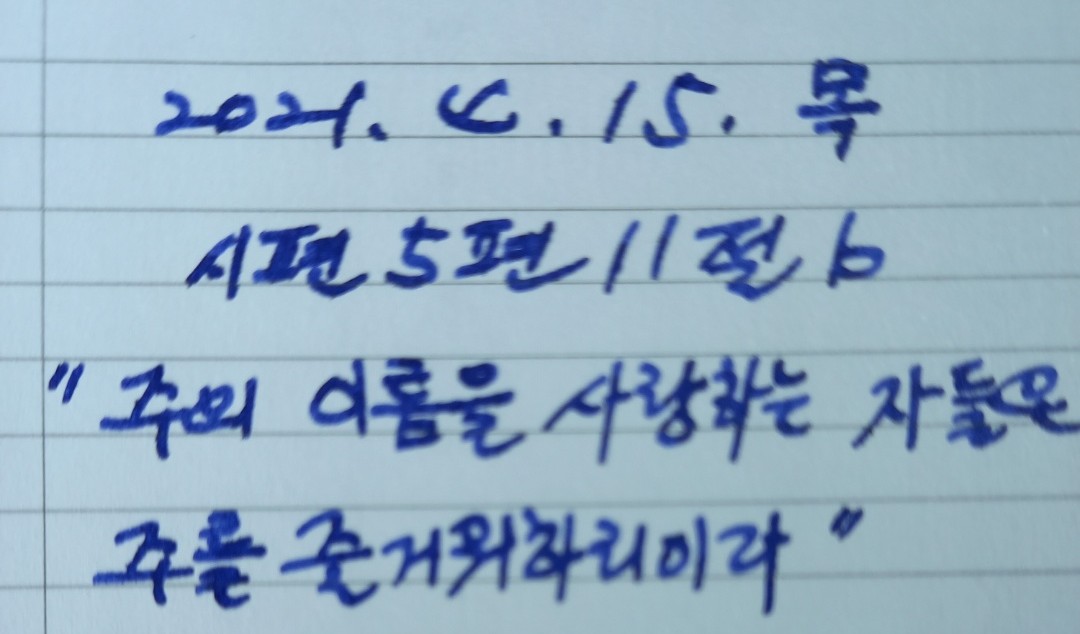 2021. 4. 15. 목
시편 5편 11절 b
" 주의 이름을 사랑하는 자들은
주를 즐거워하리이라 "